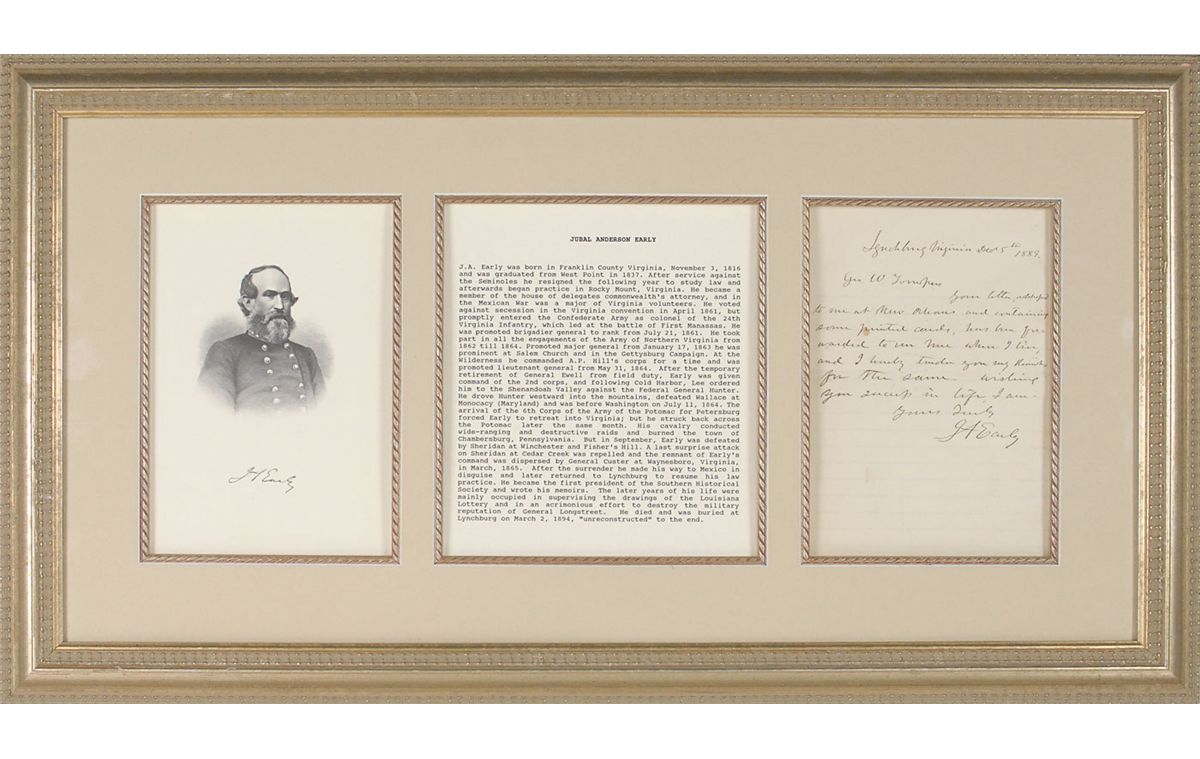 J A Early
JUBAL ANDERSON EARLY
J.A. Early was born in Franklin County Virginia, November 3, 1816
and was graduated from West Point in 1837. After service against
the Seminoles he resigned the following year to study law and
afterwards began practice in Rocky Mount, Virginia. He became a
member of the house of delegates commonwealth's attorney, and in
the Mexican War was a major of Virginia volunteers. He voted
against secession in the Virginia convention in April 1861, but
promptly entered the Confederate Army as colonel of the 24th
Virginia Infantry, which led at the battle of First Manassas. He
was promoted brigadier general to rank from July 21, 1861. He took
part in all the engagements of the Army of Northern Virginia from
1862 till 1864. Promoted major general from January 17, 1863 he was
prominent at Salem Church and in the Gettysburg Campaign. At the
Wilderness he commanded A.P. Hill's corps for a time and was
promoted lieutenant general from May 31, 1864. After the temporary
retirement of General Ewell from field duty, Early was given
command of the 2nd corps, and following Cold Harbor, Lee ordered
him to the Shenandoah Valley against the Federal General Hunter.
He drove Hunter westward into the mountains, defeated Wallace at
Monocacy (Maryland) and was before Washington on July 11, 1864. The
arrival of the 6th Corps of the Army of the Potomac for Petersburg
forced Early to retreat into Virginia; but he struck back across
the Potomac later the same month. His cavalry conducted
wide-ranging and destructive raids and burned the town of
Chambersburg, Pennsylvania. But in September, Early was defeated
by Sheridan at Winchester and Fisher's Hill. A last surprise attack
on Sheridan at Cedar Creek was repelled and the remnant of Early's
command was dispersed by General Custer at Waynesboro, Virginia,
in March, 1865. After the surrender he made his way to Mexico in
disguise and later returned to Lynchburg to resume his law
practice. He became the first president of the Southern Historical
Society and wrote his memoirs. The later years of his life were
mainly occupied in supervising the drawings of the Louisiana
Lottery and in an acrimonious effort to destroy the military
reputation of General Longstreet. He died and was buried at
Lynchburg on March 2, 1894, "unreconstructed" to the end.
Lynchburg Virginia Dec 5th
1889.
Geo W
Your letter, addressed
to me at New Orleans and containing
some printed cards, has been for
warded to me here where I live,
and I hereby tender you my thanks
for the same. wishing
you success in life I am
Yours Truly
J A Early